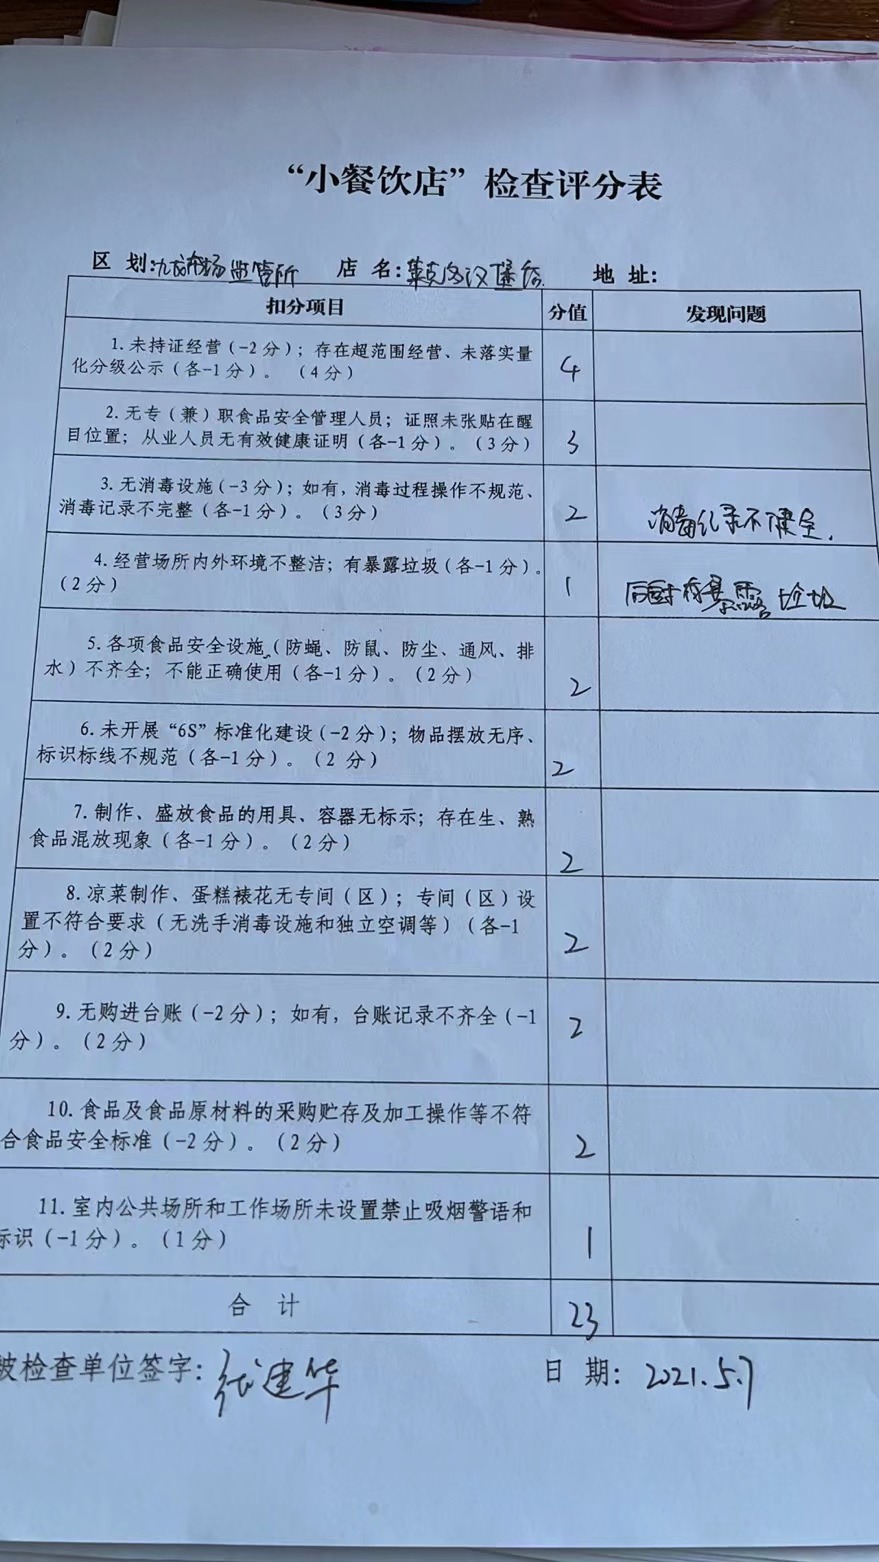 “小餐饮店”检查评分表
区 划:九店市场监管所 店 名:莱克多汉堡店 地 址:
扣分项目 分值 发现问题
1.未持证经营(-2分);存在超范围经营、未落实量
化分级公示(各-1分)。(4分) 4
2.无专(兼)职食品安全管理人员;证照未张贴在醒
目位置;从业人员无有效健康证明(各-1分)。(3分) 3
3.无消毒设施(-3分);如有,消毒过程操作不规范、
消毒记录不完整(各-1分)。(3分) 2 消毒记录不健全.
4.经营场所内外环境不整洁;有暴露垃圾(各-1分)。
(2分) 1 后厨有暴露垃圾
5.各项食品安全设施(防蝇、防鼠、防尘、通风、排
水)不齐全;不能正确使用(各-1分)。(2分) 2
6.未开展“6S”标准化建设(-2分);物品摆放无序、
标识标线不规范(各-1分)。(2 分) 2
7.制作、盛放食品的用具、容器无标示;存在生、熟
食品混放现象(各-1分)。(2分) 2
8.凉菜制作、蛋糕裱花无专间(区);专间(区)设
置不符合要求(无洗手消毒设施和独立空调等)(各-1
分)。(2分) 2
9.无购进台账(-2分);如有,台账记录不齐全(-1
分)。(2分) 2
10.食品及食品原材料的采购贮存及加工操作等不符
合食品安全标准(-2分)。(2分) 2
11.室内公共场所和工作场所未设置禁止吸烟警语和
标识(-1分)。(1分) 1
合 计 23
被检查单位签字:张建华 日 期: 2021.5.7